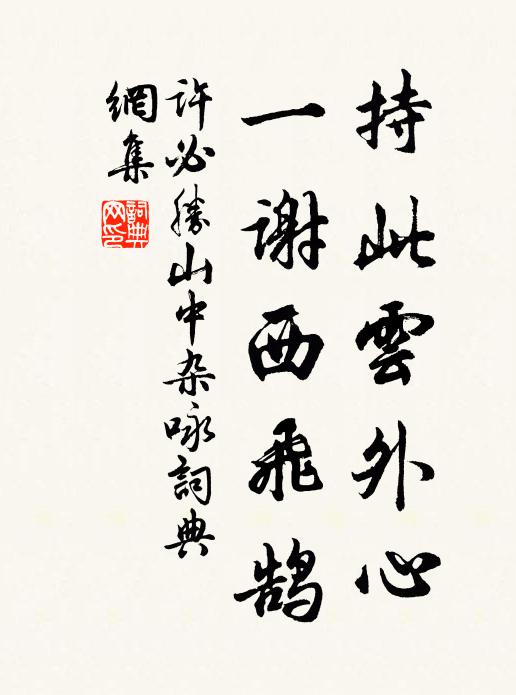 持此雲外心
一謝西飛鹄
許必勝山中杂咏詞典
網集
詞典
网印